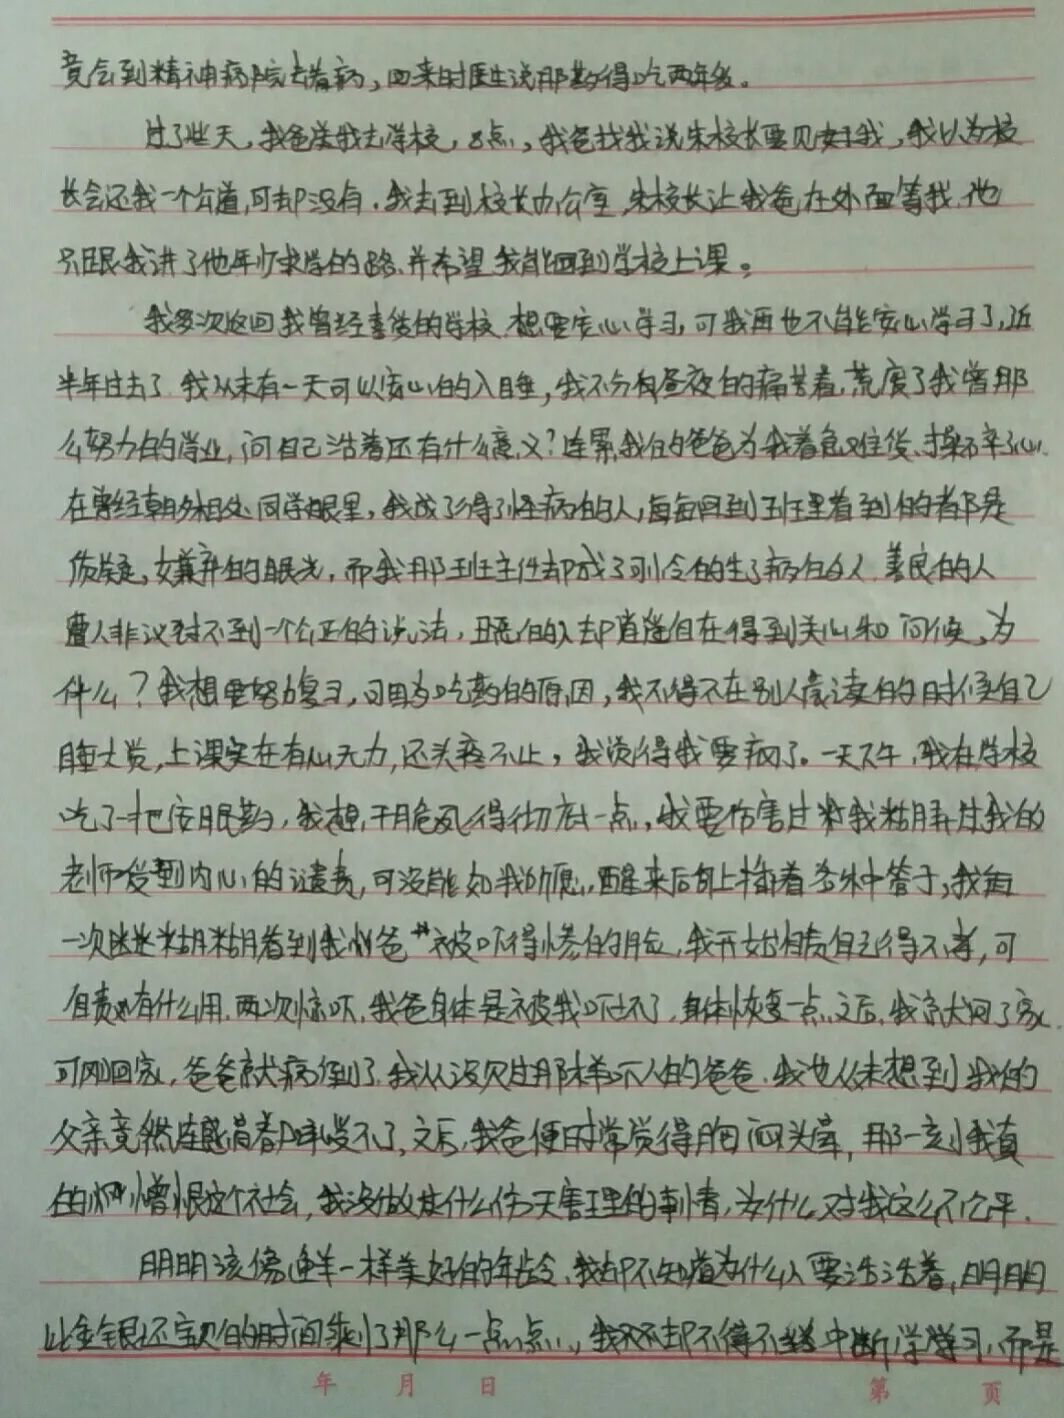 竟会到精神病院去看病，回来时医生说那药得吃两年多。
过了些天，我爸送我去学校，8点，我爸找我说朱校长要见我，我以为校
长会还我一个公道，可却没有。我去到校长办公室，朱校长让我爸在外面等我，他
只跟我讲了他年少求学的路，并希望我能回到学校上课。
我多次返回我曾经喜爱的学校，想要安心学习，可我再也不能安心学习了，近
半年过去了，我从未有一天可以安心的入睡，我不分白昼夜的痛苦着，荒废了我曾那
么努力的学业，问自己活着还有什么意义？连累我的爸爸为我着急难住贷，操碎了心，
在曾经朝夕相处同学眼里，我成了得了怪病的人，每每回到班里看到的都是
质疑，嫌弃的眼光，而我那班主任却成了可怜的生了病的人，善良的人
遭人非议讨不到一个公正的说法，丑恶的人却逍遥自在得到关心和问候，为
什么？我想要努力复习，可因为吃药的原因，我不得不在别人读的时候自己
睡大觉，上课实在有心无力，还头疼不止，我觉得我要疯了。一天下午，我在学校
吃了一把安眠药，我想，干脆死得彻底一点，我要伤害过我糊弄过我的
老师受到内心的谴责，可没能如我所愿，醒来后身上插着各种管子，我每
一次迷迷糊糊看到我爸被吓得惨白的脸，我开始自责自己得不孝，可
自责有什么用，两次惊吓，我爸身体是被我吓坏了，身体恢复一点之后，我就回了家，
可刚回家，爸爸就病倒了，我从没见过那样吓人的爸爸，我也从未想到我的
父亲竟然连感冒都承受不了，之后，我爸便时常觉得胸闷头晕，那一刻我真
的憎恨这个社会，我没做过什么伤天害理的事情，为什么对我这么不公平，
明明该像鲜一样美好的年龄，我却不知道为什么要活活着，明明
比金银还宝贝的时间剩了那么一点点，我却不得不中断学习，而是
年 月 日
第 页